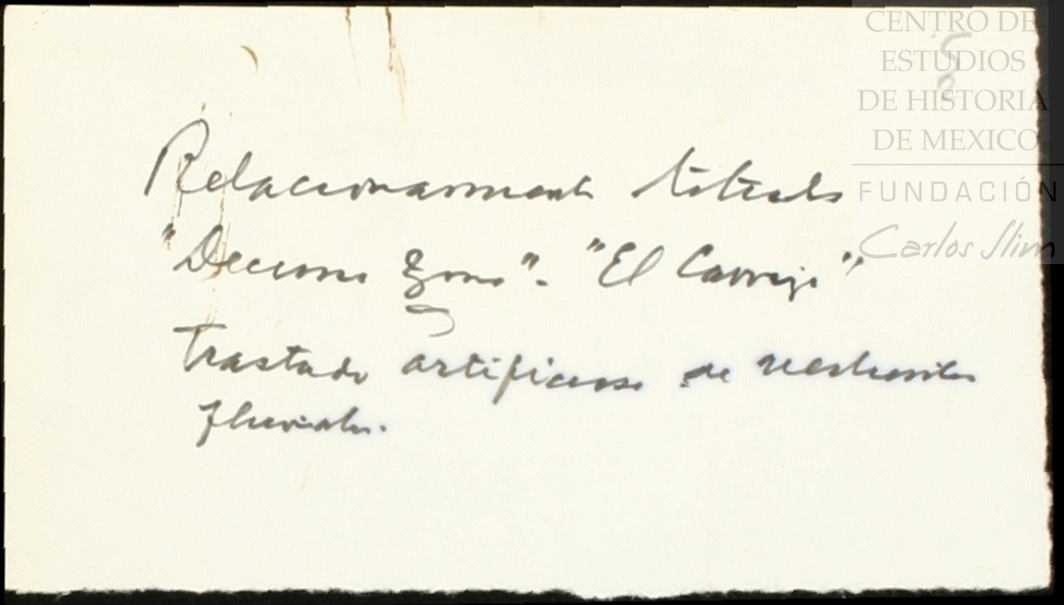 CENTRO DE
ESTUDIOS
DE HISTORIA
DE MEXICO
FUNDACIÓN
Carlos Slim
8
Relacionamiento
"Decimo". "El Carrizo"
Trastado artificioso de
fluviales.